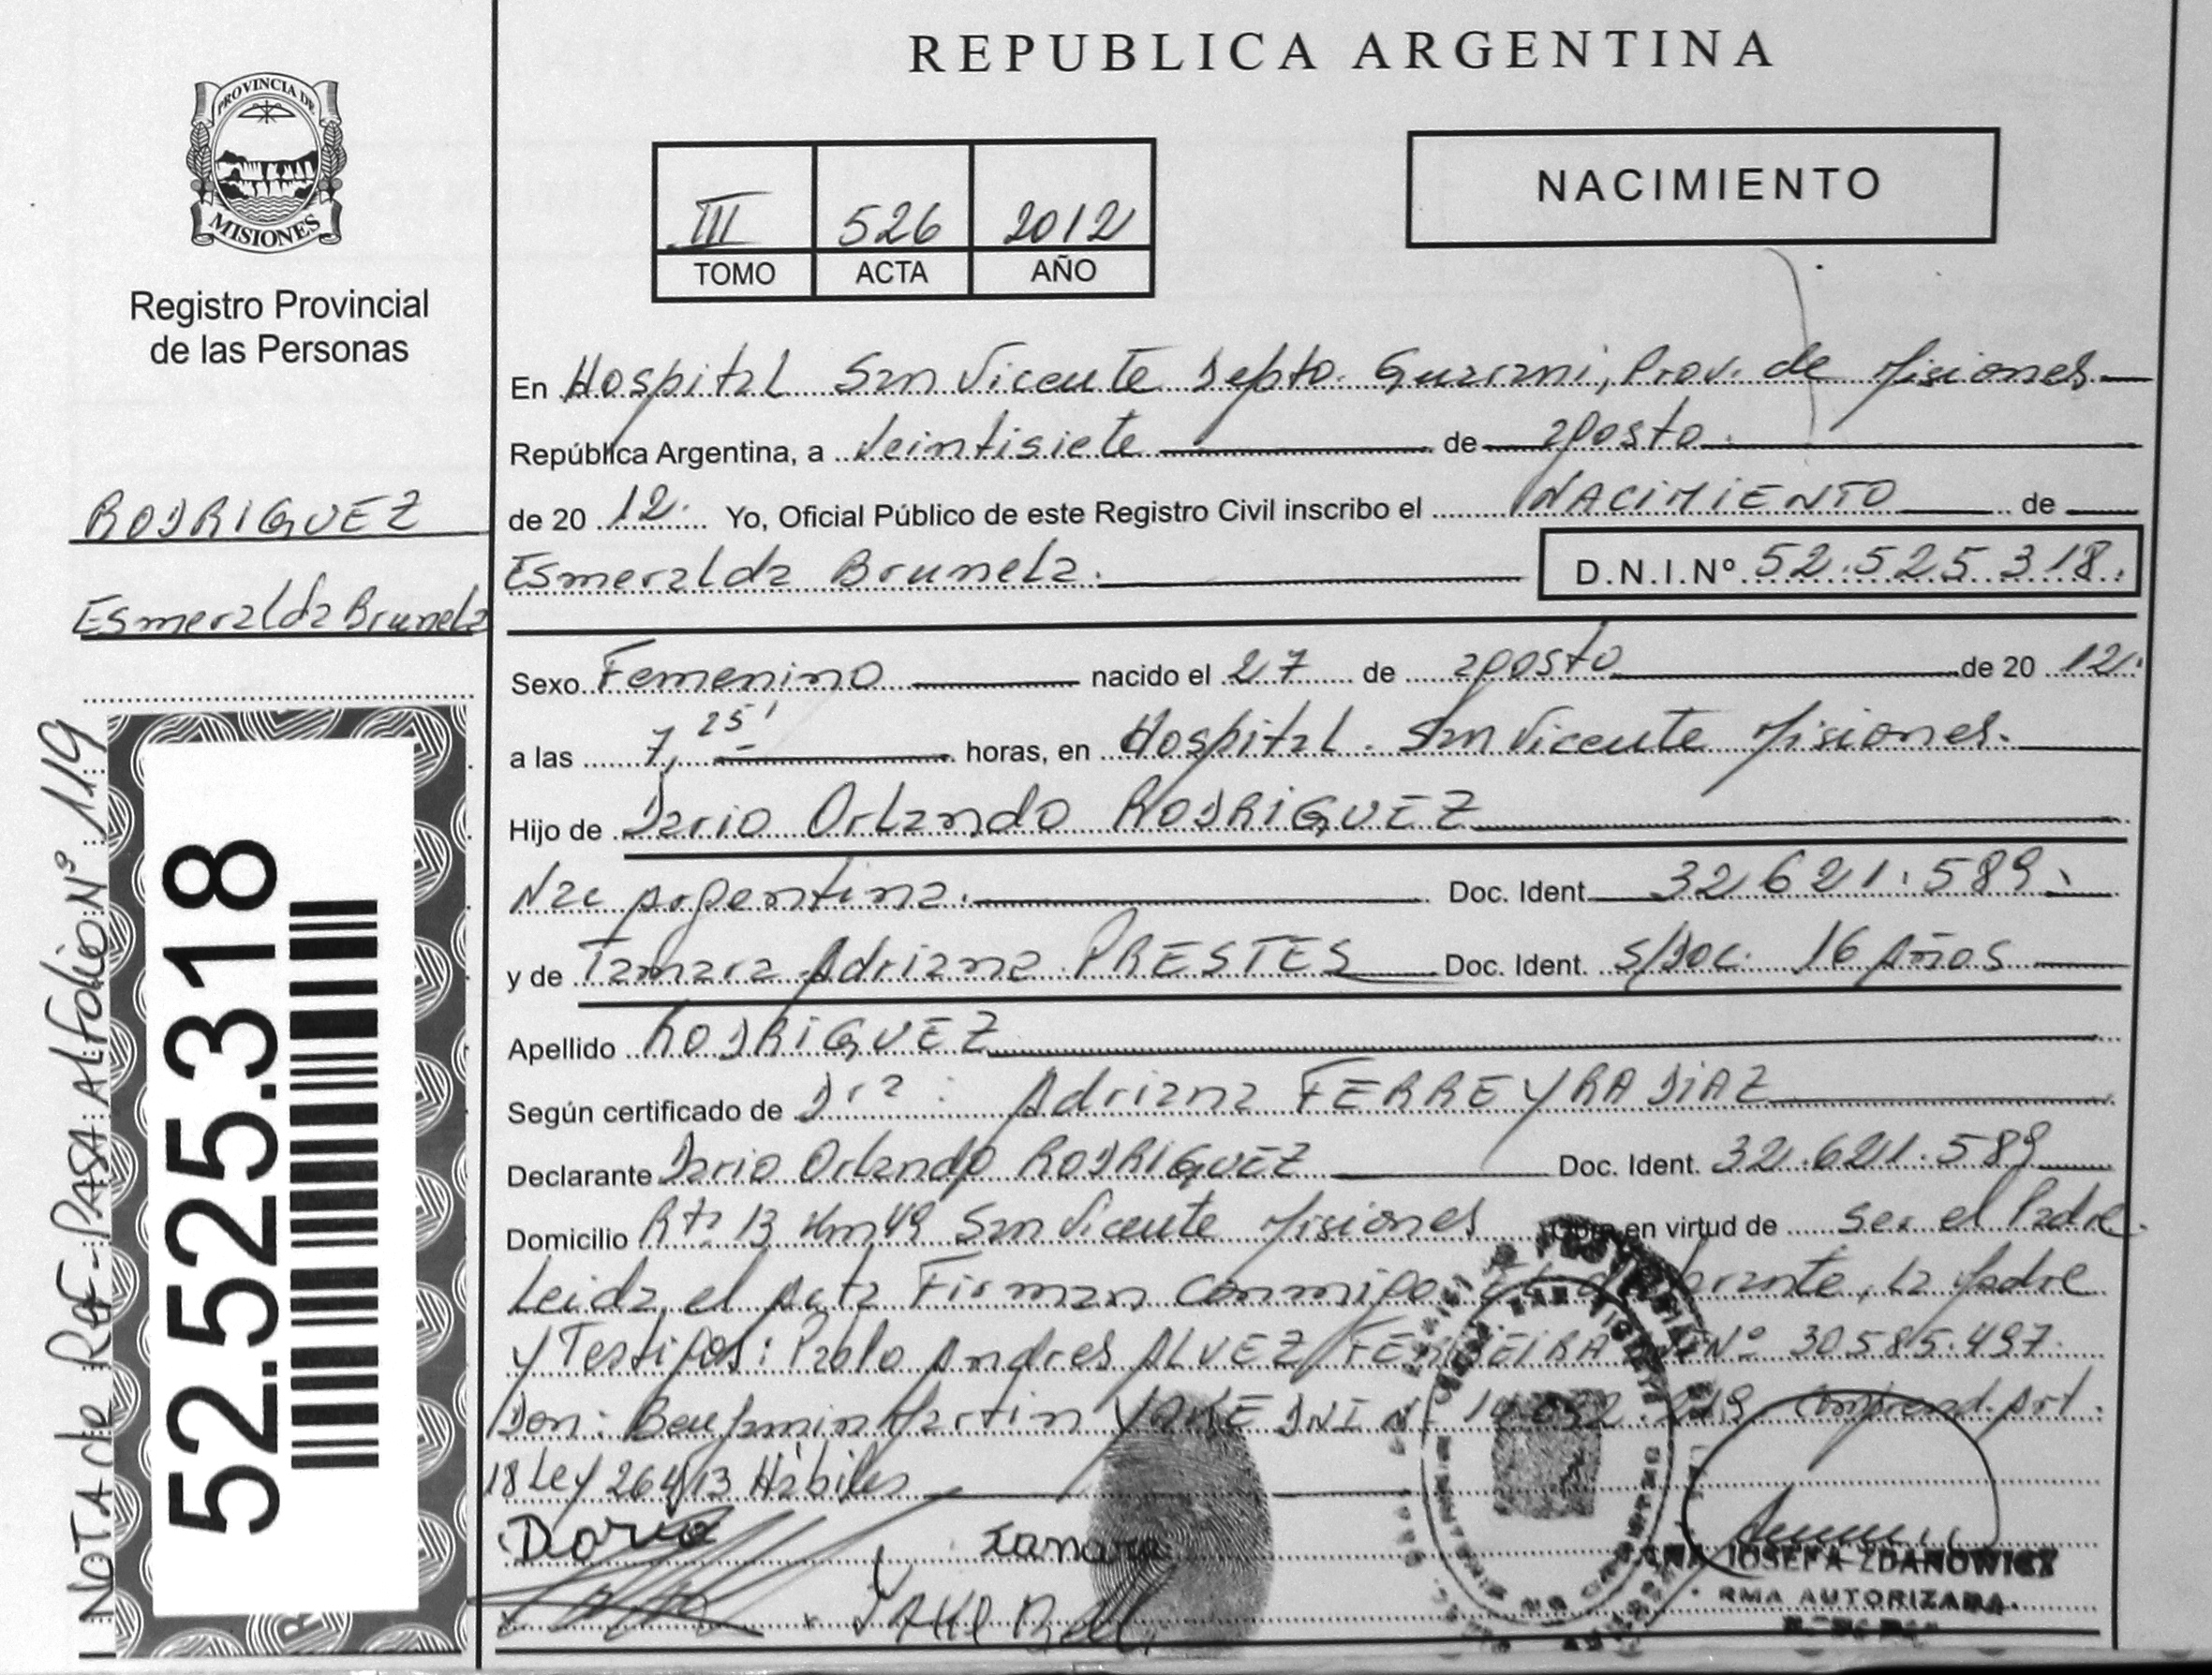 REPUBLICA ARGENTINA
PROVINCIA DE
MISIONES
Registro Provincial
de las Personas
III 526 2012
TOMO ACTA AÑO
NACIMIENTO
RODRIGUEZ
Esmeralda Brunela
NOTA de Ref-PASA Al folio Nº 119
52.525.318
En Hospital San Vicente Depto. Guarani, Prov. de Misiones
República Argentina, a Veintisiete de agosto.
de 20 12. Yo, Oficial Público de este Registro Civil inscribo el NACIMIENTO de
Esmeralda Brunela. D.N.I.Nº 52.525.318.
Sexo Femenino nacido el 27 de agosto de 20 12.
a las 7,25' horas, en Hospital. San Vicente Misiones.
Hijo de Dario Orlando RODRIGUEZ
Nac Argentina. Doc. Ident. 32.621.589.
y de Tamara Adriana PRESTES Doc. Ident. S/Doc. 16 Años
Apellido RODRIGUEZ
Según certificado de Dra: Adriana FERREYRA DIAZ
Declarante Dario Orlando RODRIGUEZ Doc. Ident. 32.621.589
Domicilio Rta 13 Km 49 San Vicente Misiones en virtud de ser el Padre.
Leida el Acta Firman conmigo El declarante, la Madre
y Testigos: Pablo Andres ALVEZ FERREIRA DNI Nº 30585.497.
Don: Benjamin Martin DNI Nº Comprend. Art.
18 Ley 26413 Hábiles
Dario Tamara
JOSEFA ZDANOWICZ
FIRMA AUTORIZADA